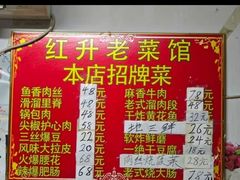 红升老菜馆
本店招牌菜
鱼香肉丝 48元
滑溜里脊 48元
锅包肉 48元
尖椒护心肉 58元
三丝爆豆 32元
风味大拉皮 20元
火爆腰花 68元
辣爆肥肠 68元
麻香牛肉 78元
老式溜肉段 48元
干炸黄花鱼 32元
地三鲜 26元
软炸鲜蘑 24元
一绝干豆腐 18元
28元
老式烧大肠 78元